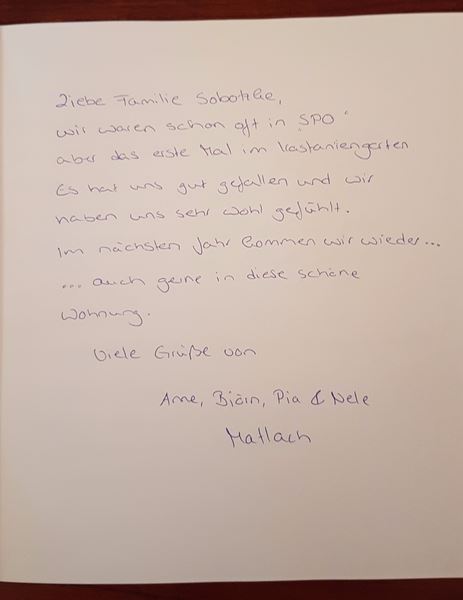 Liebe Familie Sobottke,
wir waren schon oft in „SPO“
aber das erste Mal im Kastaniengarten
Es hat uns gut gefallen und wir
haben uns sehr wohl gefühlt.
Im nächsten Jahr kommen wir wieder...
... auch gerne in diese schöne
Wohnung.
Viele Grüße von
Arne, Björn, Pia & Nele
Matlach